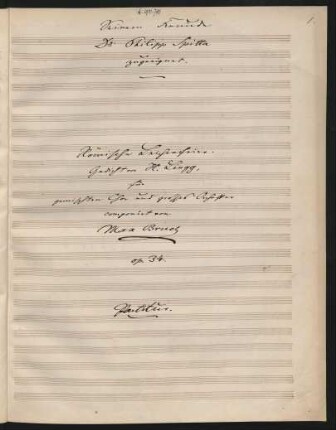 1.
Seinem Freunde
Dr Philipp Spitta
zugeeignet.
Römische Leichenfeier.
Gedicht von H. Lingg,
für
gemischten Chor und großes Orchester
componirt von
Max Bruch
op. 34.
Partitur.